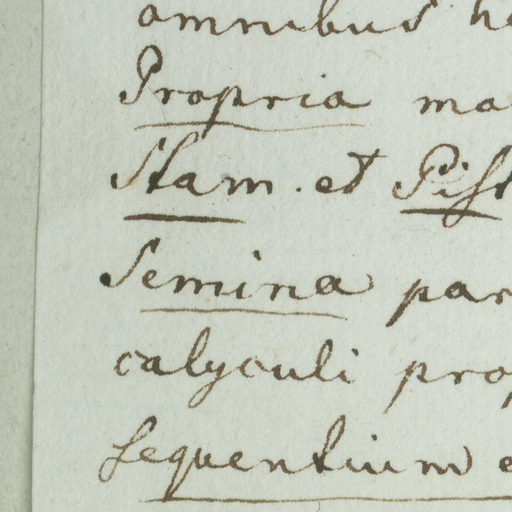 omnibus
Propria ma
Stam. et Pist
Semina par
calyculi prop
sequentium e